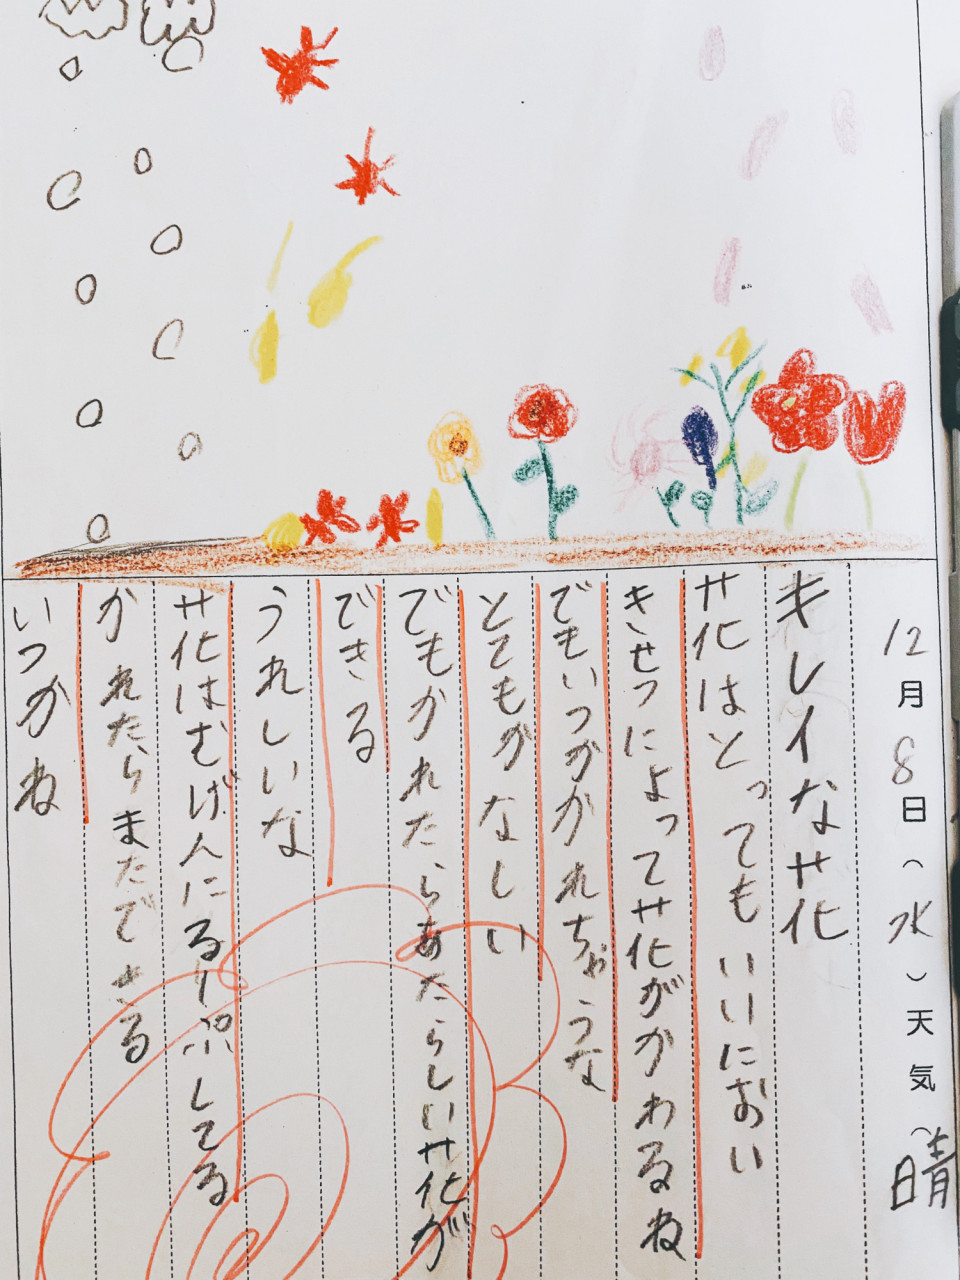 12月8日（水）天気（晴
キレイな花
花はとってもいいにおい
きせつによって花がかわるね
でもいつかかれちゃうな
とてもかなしい
でもかれたらあたらしい花が
できる
うれしいな
花はむげんにるーぷしてる
かれたらまたできる
いつかね